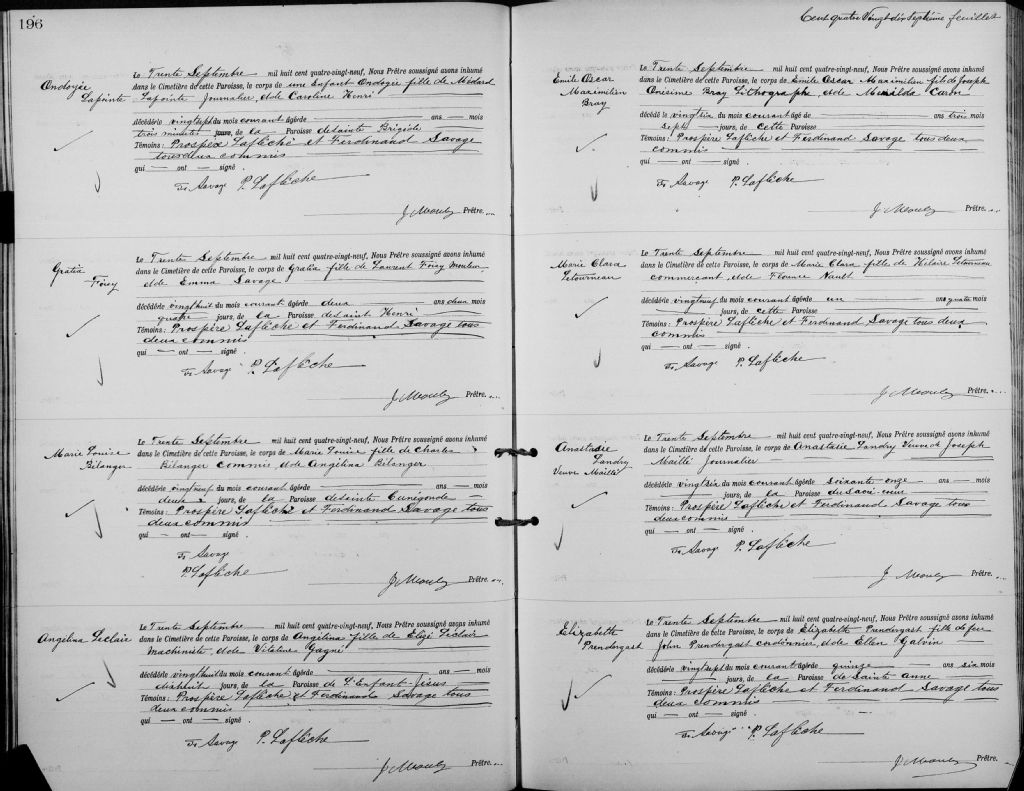 196
Ondoyée
Lapointe
Le Trente Septembre mil huit cent quatre-vingt-neuf, Nous Prêtre soussigné avons inhumé
dans le Cimetière de cette Paroisse, le corps de une Enfant Ondoyée fille de Médard
Lapointe Journalier, & de Caroline Henri
décédée vingt sept du mois courant âgée de — ans — mois
trois minutes jours, de la Paroisse de Sainte Brigide
Témoins : Prospère Laflèche et Ferdinand Savage
tous deux commis
qui — ont — signé.
Fr Savage P. Laflèche
Prêtre.
Gratia
Forey
Le Trente Septembre mil huit cent quatre-vingt-neuf, Nous Prêtre soussigné avons inhumé
dans le Cimetière de cette Paroisse, le corps de Gratia fille de Laurent Forey Mouleur
& de Emma Savage
décédée vingt huit du mois courant âgée de deux — ans deux mois
quatre jours, de la Paroisse de Saint Henri
Témoins : Prospère Laflèche et Ferdinand Savage tous
deux commis
qui — ont — signé.
Fr Savage P. Laflèche
Prêtre.
Marie Louise
Bélanger
Le Trente Septembre mil huit cent quatre-vingt-neuf, Nous Prêtre soussigné avons inhumé
dans le Cimetière de cette Paroisse, le corps de Marie Louise fille de Charles
Bélanger commis, & de Angélina Bélanger
décédée vingt neuf du mois courant âgée de — ans — mois
deux jours, de la Paroisse de Sainte Cunégonde
Témoins : Prospère Laflèche et Ferdinand Savage tous
deux commis
qui — ont — signé.
Fr Savage
P. Laflèche
Prêtre.
Angélina Leclair
Le Trente Septembre mil huit cent quatre-vingt-neuf, Nous Prêtre soussigné avons inhumé
dans le Cimetière de cette Paroisse, le corps de Angélina fille de Eligé Leclair
Machiniste, & de Vitaline Gagné
décédée vingt huit du mois courant âgée de — ans — mois
jours, de la Paroisse de L'Enfant Jésus
Témoins : Prospère Laflèche et Ferdinand Savage tous
deux commis
qui — ont — signé.
Fr Savage P. Laflèche
Prêtre.
Cent quatre Vingt dix Septième feuillet
Emile Oscar
Maximilien
Bray
Le Trente Septembre mil huit cent quatre-vingt-neuf, Nous Prêtre soussigné avons inhumé
dans le Cimetière de cette Paroisse, le corps de Emile Oscar Maximilien fils de Joseph
Onisime Bray Lithographe, & de
décédé le vingt six du mois courant âgé de — ans trois mois
Sept jours, de cette Paroisse
Témoins : Prospère Laflèche et Ferdinand Savage tous deux
commis
qui — ont — signé.
Fr Savage P. Laflèche
Prêtre.
Marie Clara
Letourneau
Le Trente Septembre mil huit cent quatre-vingt-neuf, Nous Prêtre soussigné avons inhumé
dans le Cimetière de cette Paroisse, le corps de Marie Clara fille de Hilaire Letourneau
commerçant & de Florence Nault
décédée vingt neuf du mois courant âgée de un — ans quatre mois
— jours, de cette Paroisse
Témoins : Prospère Laflèche et Ferdinand Savage tous deux
commis
qui — ont — signé.
Fr Savage P. Laflèche
Prêtre.
Anastasie
Landry
Veuve Maillé
Le Trente Septembre mil huit cent quatre-vingt-neuf, Nous Prêtre soussigné avons inhumé
dans le Cimetière de cette Paroisse, le corps de Anastasie Landry Veuve de Joseph
Maillé Journalier
décédée vingt six du mois courant âgée de Soixante onze — ans — mois
— jours, de la Paroisse du Sacré-cœur
Témoins : Prospère Laflèche et Ferdinand Savage tous
deux commis
qui — ont — signé.
Fr Savage P. Laflèche
Prêtre.
Elizabeth
Prendergast
Le Trente Septembre mil huit cent quatre-vingt-neuf, Nous Prêtre soussigné avons inhumé
dans le Cimetière de cette Paroisse, le corps de Elizabeth Prendergast fille de feu
John Prendergast cordonnier, & de Ellen Galvin
décédée vingt sept du mois courant âgée de quinze — ans six mois
— jours, de la Paroisse de Sainte Anne
Témoins : Prospère Laflèche et Ferdinand Savage tous
deux commis
qui — ont — signé.
Fr Savage P. Laflèche
Prêtre.